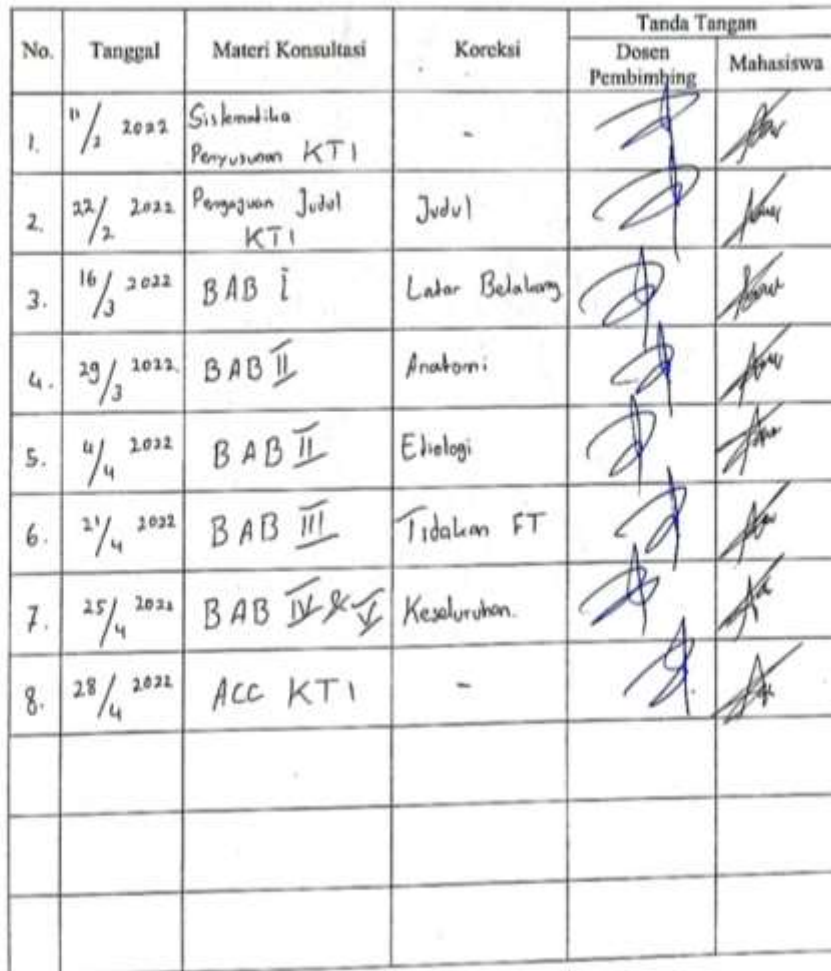 No. Tanggal Materi Konsultasi Koreksi Tanda Tangan
Dosen Pembimbing Mahasiswa
1. 11/2 2022 Sistematika Penyusunan KTI -
2. 22/2 2022 Pengajuan Judul KTI Judul
3. 16/3 2022 BAB I Latar Belakang
4. 29/3 2022 BAB II Anatomi
5. 4/4 2022 BAB II Etiologi
6. 21/4 2022 BAB III Tidakan FT
7. 25/4 2022 BAB IV & V Keseluruhan.
8. 28/4 2022 ACC KTI -